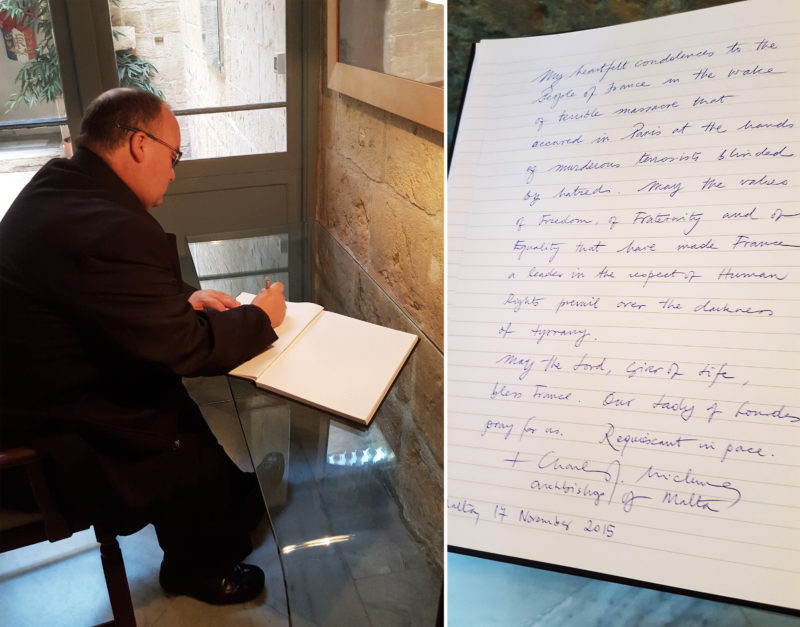 My heartfelt condolences to the
People of France in the wake
of terrible massacre that
occured in Paris at the hands
of murderous terrorists blinded
by hatreds. May the values
of Freedom, of Fraternity and of
Equality that have made France
a leader in the respect of Human
Rights prevail over the darkness
of tyranny.
May the Lord, Giver of Life,
bless France. Our Lady of Lourdes
pray for us. Requiescant in pace.
+ Charles J.
Archbishop of Malta
17 November 2015